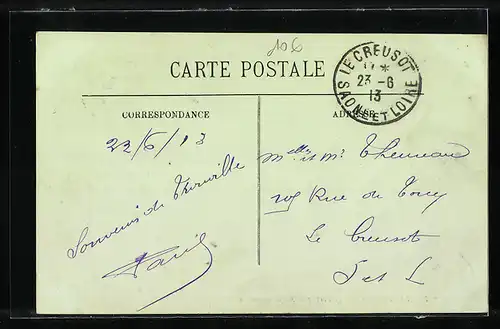 106
CARTE POSTALE
LE CREUSOT
17 *
23 - 6
13
SAONE ET LOIRE
CORRESPONDANCE
ADRESSE
22/6/13
Souvenir de
Melle et Mr
Rue de
Le Creusot
S et L